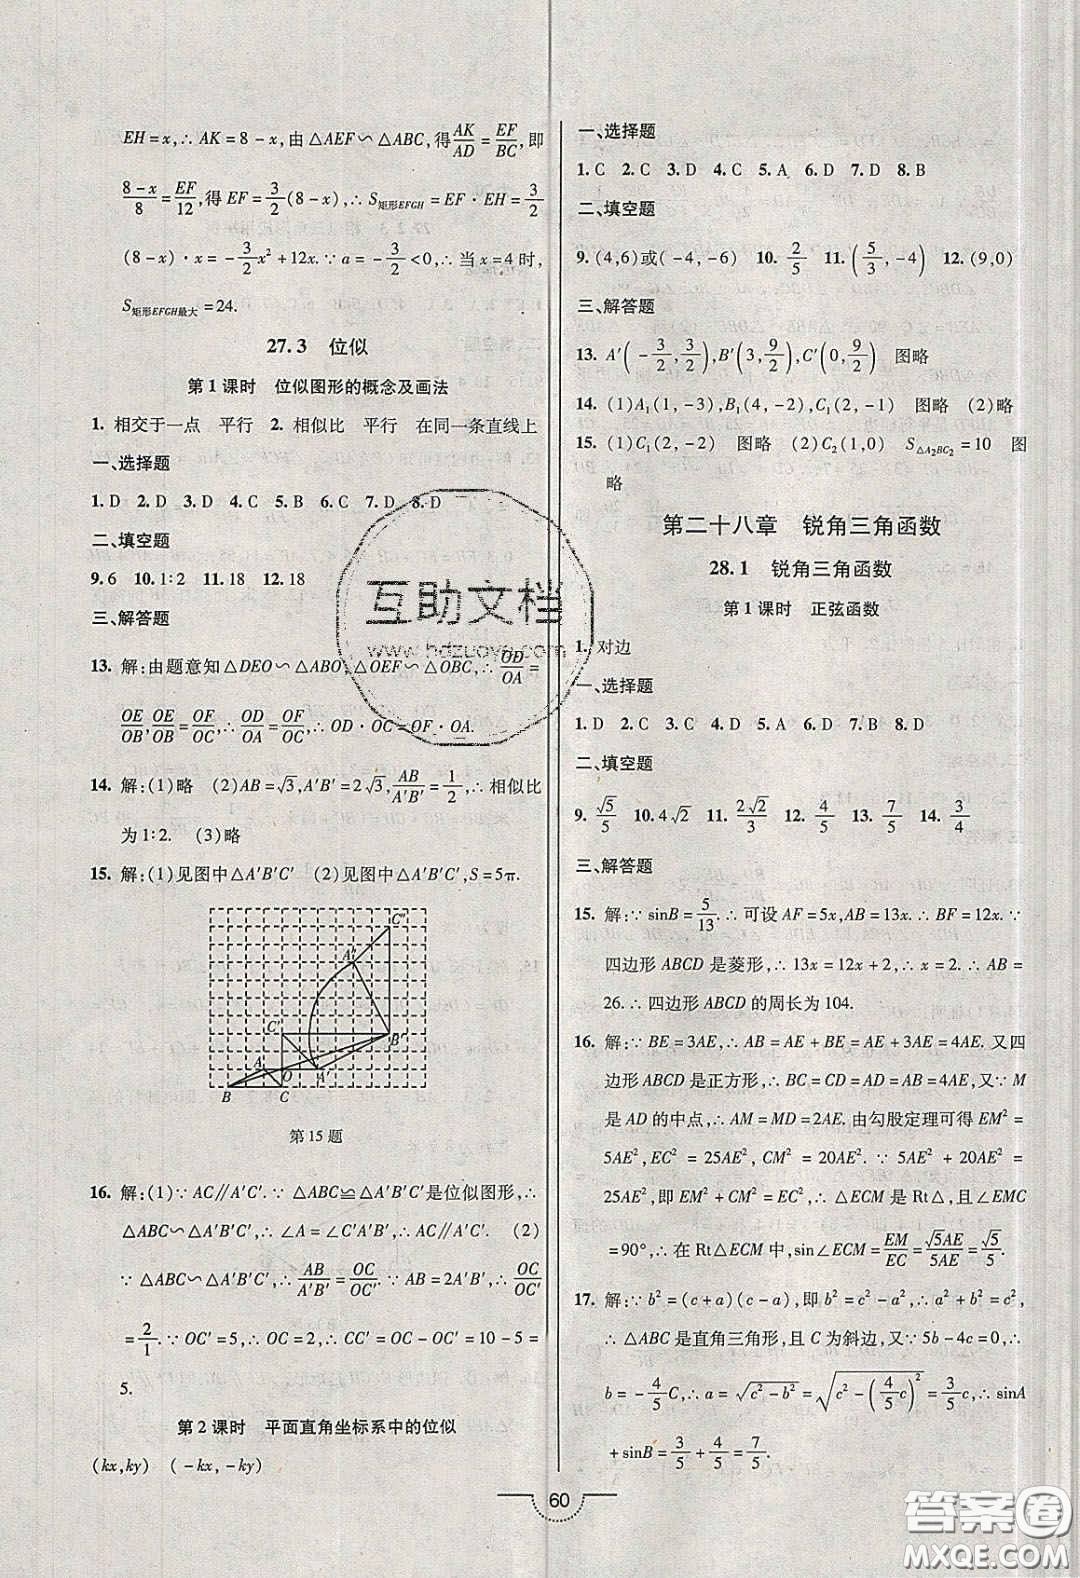 EH=x,∴AK=8-x,由△AEF∽△ABC,得AK/AD=EF/BC,即
8-x/8=EF/12,得EF=3/2(8-x),∴S矩形EFGH=EF·EH=3/2
(8-x)·x=-3/2x²+12x.∵a=-3/2<0,∴当x=4时,
S矩形EFGH最大=24.
27.3 位似
第1课时 位似图形的概念及画法
1. 相交于一点 平行 2. 相似比 平行 在同一条直线上
一、选择题
1. D 2. D 3. D 4. C 5. B 6. C 7. D 8. D
二、填空题
9. 6 10. 1∶2 11. 18 12. 18
三、解答题
13. 解:由题意知△DEO∽△ABO,△OEF∽△OBC,∴OD/OA=
OE/OB,OE/OB=OF/OC,∴OD/OA=OF/OC,∴OD·OC=OF·OA.
14. 解:(1)略 (2)AB=√3,A′B′=2√3,AB/A′B′=1/2,∴相似比
为1∶2. (3)略
15. 解:(1)见图中△A′B′C′ (2)见图中△A′B′C′,S=5π.
C″
A″
C′
B′
A
O
A′
B
C
第15题
16. 解:(1)∵AC∥A′C′.∵△ABC≌△A′B′C′是位似图形,∴
△ABC∽△A′B′C′,∴∠A=∠C′A′B′,∴AC∥A′C′. (2)
∵△ABC∽△A′B′C′,∴AB/A′B′=OC/OC′.∵AB=2A′B′,∴OC/OC′
=2/1.∵OC′=5,∴OC=10,∴CC′=OC-OC′=10-5=
5.
第2课时 平面直角坐标系中的位似
(kx,ky) (-kx,-ky)
一、选择题
1. C 2. C 3. D 4. C 5. A 6. D 7. D 8. B
二、填空题
9. (4,6)或(-4,-6) 10. 2/5 11. (5/3,-4) 12. (9,0)
三、解答题
13. A′(-3/2,3/2),B′(3,9/2),C′(0,9/2) 图略
14. (1)A₁(1,-3),B₁(4,-2),C₁(2,-1) 图略 (2)略
15. (1)C(2,-2) 图略 (2)C₂(1,0) S△A₂BC₂=10 图
略
第二十八章 锐角三角函数
28.1 锐角三角函数
第1课时 正弦函数
1. 对边
一、选择题
1. D 2. C 3. D 4. A 5. A 6. D 7. B 8. D
二、填空题
9. √5/5 10. 4√2 11. 2√2/3 12. 4/5 13. 7/5 14. 3/4
三、解答题
15. 解:∵sinB=5/13.∴可设AF=5x,AB=13x.∴BF=12x.∵
四边形ABCD是菱形,∴13x=12x+2,∴x=2.∴AB=
26.∴四边形ABCD的周长为104.
16. 解:∵BE=3AE,∴AB=AE+BE=AE+3AE=4AE.又四
边形ABCD是正方形,∴BC=CD=AD=AB=4AE,又∵M
是AD的中点,∴AM=MD=2AE.由勾股定理可得EM²=
5AE²,EC²=25AE²,CM²=20AE².∵5AE²+20AE²=
25AE²,即EM²+CM²=EC²,∴△ECM是Rt△,且∠EMC
=90°,∴在Rt△ECM中,sin∠ECM=EM/EC=√5AE/5AE=√5/5.
17. 解:∵b²=(c+a)(c-a),即b²=c²-a²,∴a²+b²=c²,
∴△ABC是直角三角形,且C为斜边,又∵5b-4c=0,∴
b=4/5c,∴a=√c²-b²=√c²-(4/5c)²=3/5c,∴sinA
+sinB=3/5+4/5=7/5.
60
互助文档
www.hdzuoye.com
答案圈
MXQE.COM